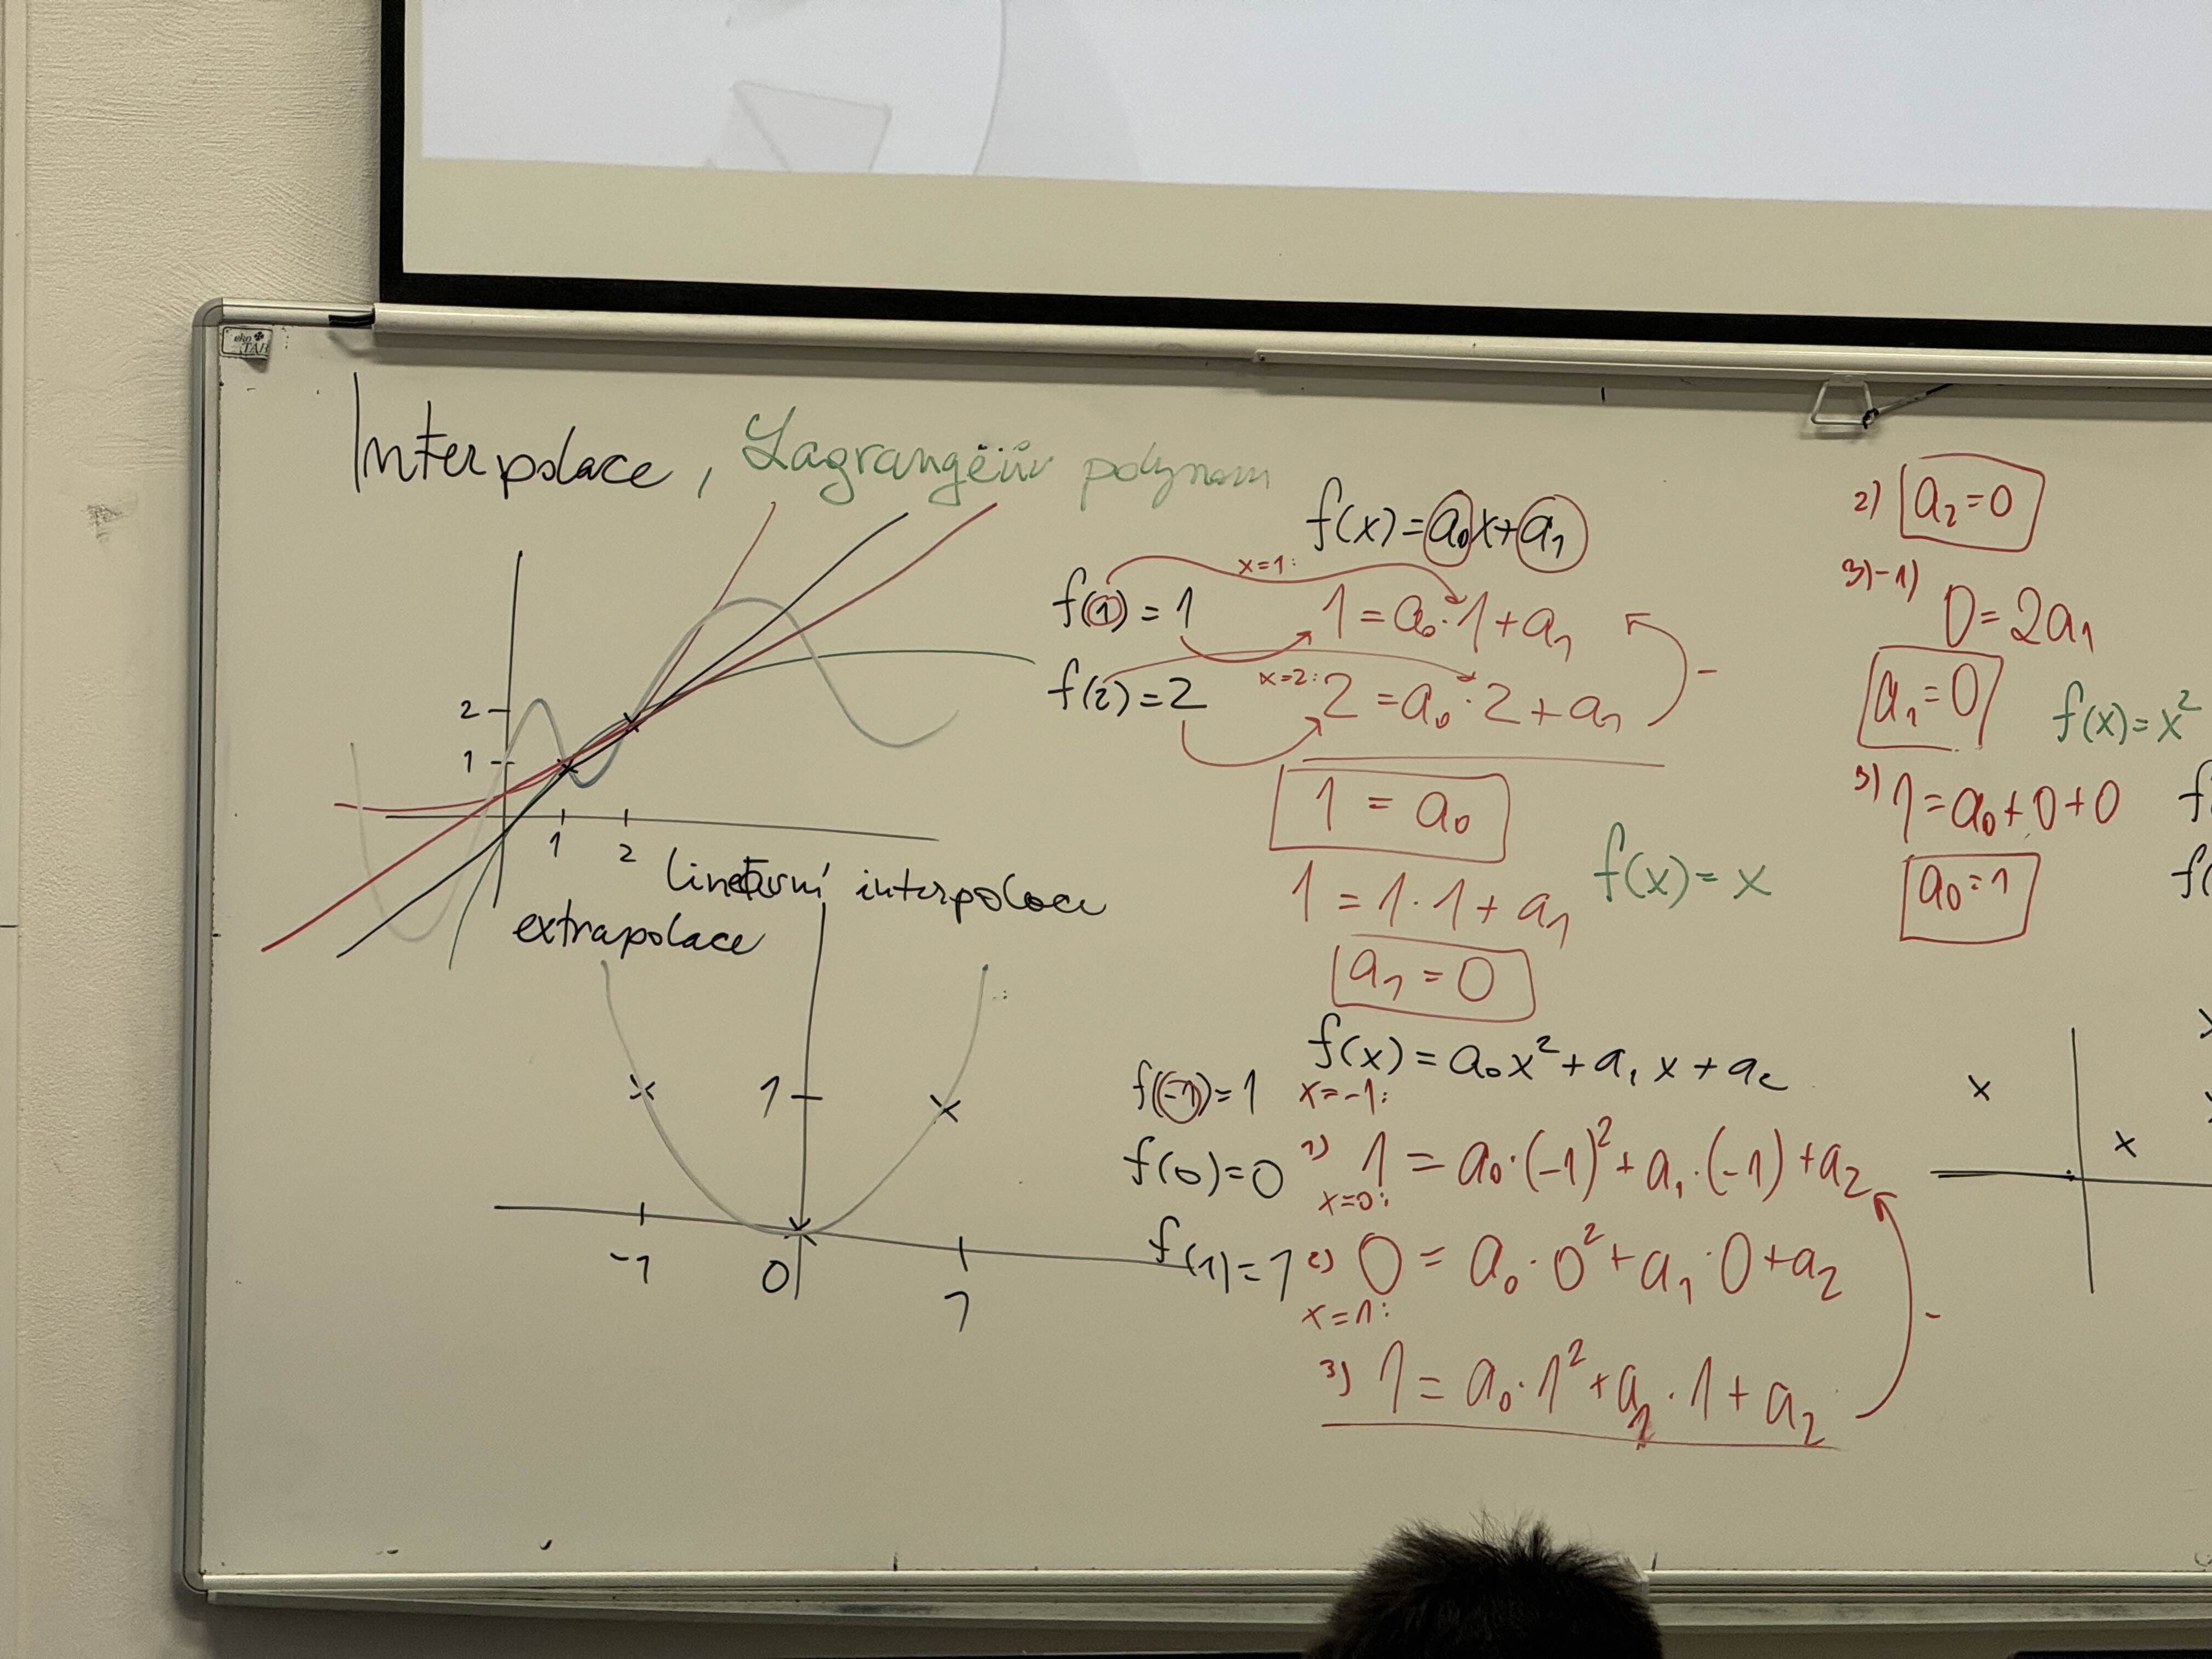 eko
TAB
Interpolace, Lagrangeův polynom
2
1
1
2
lineární interpolace
extrapolace
1
-1
0
1
f(x)=a₀x+a₁
x=1:
f(1)=1
1=a₀·1+a₁
f(2)=2
x=2:
2=a₀·2+a₁
-
1=a₀
1=1·1+a₁
f(x)=x
a₁=0
f(x)=a₀x²+a₁x+a₂
f(-1)=1
x=-1:
1) 1=a₀·(-1)²+a₁·(-1)+a₂
f(0)=0
x=0:
2) 0=a₀·0²+a₁·0+a₂
f(1)=1
x=1:
3) 1=a₀·1²+a₁·1+a₂
-
2) a₂=0
3)-1)
0=2a₁
a₁=0
f(x)=x²
3) 1=a₀+0+0
a₀=1
x
x